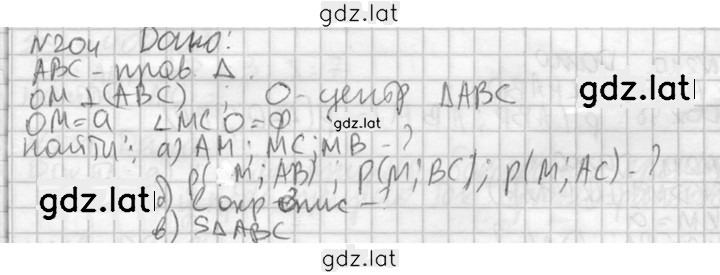 gdz.lat
N204 Дано:
ABC - прав. Δ.
OM ⊥ (ABC) ; O - центр ΔABC
OM = a ∠MCO = φ
gdz.lat
найти: а) AM; MC; MB - ?
ρ(M; AB) ; ρ(M; BC) ; ρ(M; AC) - ?
gdz.lat
б) C окр опис - ?
gdz.lat
в) SΔABC
gdz.lat